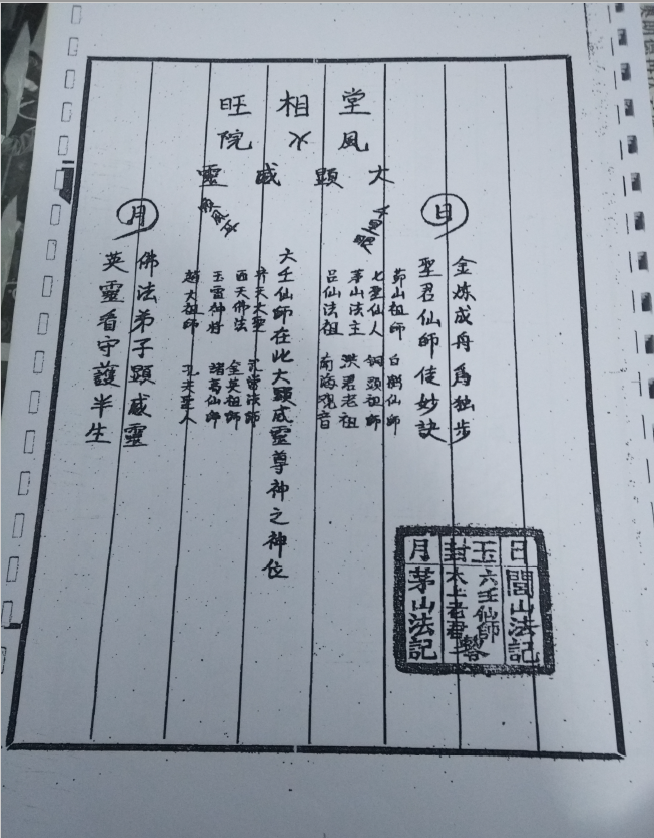 堂相旺
風火院
大顯威靈
日
月
金炼成丹為独步
聖君仙師使妙訣
茆山祖師 白鶴仙師
七聖仙人 銅頭祖師
茅山法主 洪君老祖
呂仙法祖 南海观音
六壬仙師在此大顕威靈尊神之神位
齐天大聖
西天佛法 金英祖師
玉雷神将 諸葛仙師
趙大祖師 孔夫聖人
佛法弟子顕威靈
英靈看守護半生
日玉封月
閭山法記
六壬仙師
太上老君
茅山法記